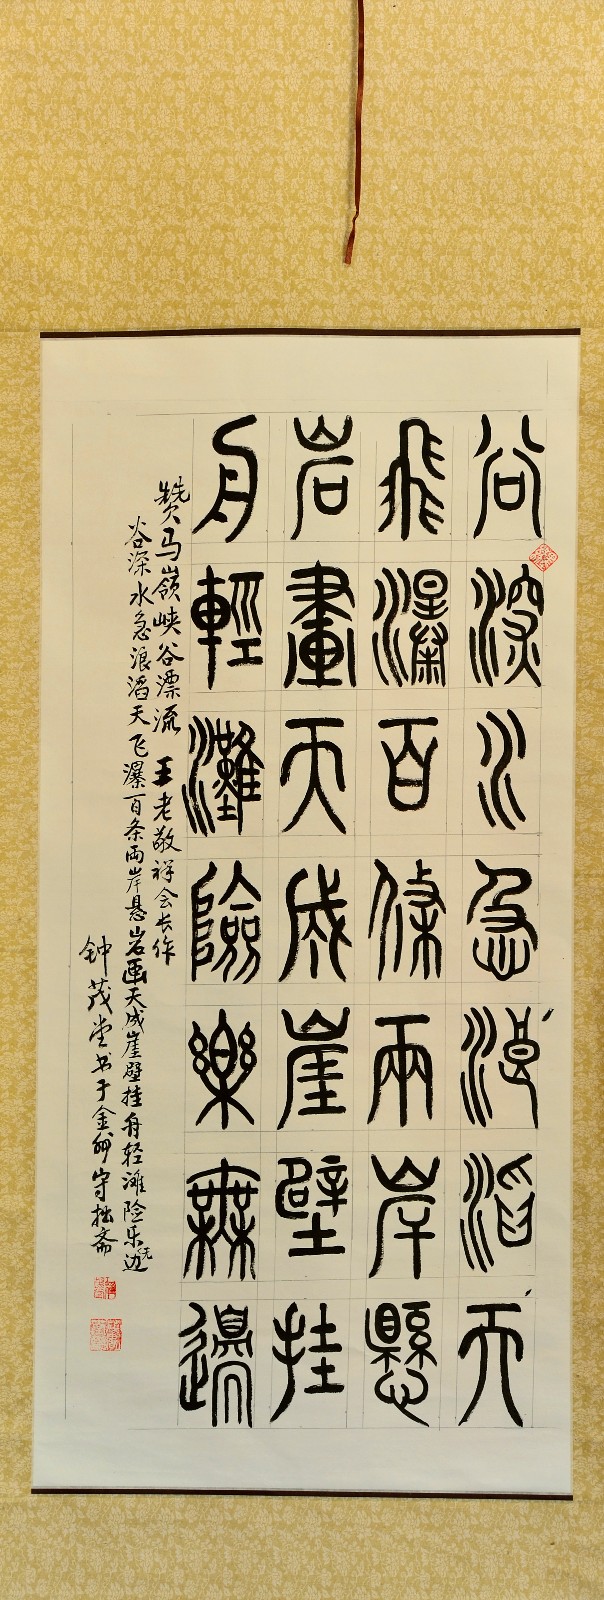 谷深水急浪滔天
飛瀑百條兩岸懸
岩畫天成崖壁挂
舟輕灘險樂無邊
赞马嶺峡谷漂流 王老敬祥会长作
谷深水急浪滔天飞瀑百条両岸悬岩画天成崖壁挂舟轻滩险乐无边
钟茂堂书于金州守拙斋